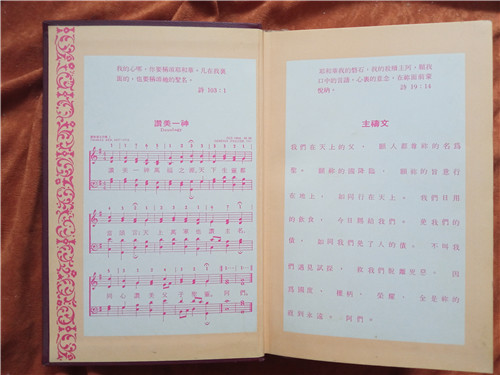 我的心哪，你要稱頌耶和華，凡在我裏
面的，也要稱頌祂的聖名。
詩 103：1
讚美一神
(Doxology)
讚美一神萬福之源天下生靈都
當頌言天上萬軍也讚主名
同心讚美父子聖靈。阿們。
耶和華我的磐石，我的救贖主阿，願我
口中的言語，心裏的意念，在祢面前蒙
悅納。
詩 19：14
主禱文
我們在天上的父，願人都尊祢的名為
聖。願祢的國降臨，願祢的旨意行
在地上，如同行在天上。我們日用
的飲食，今日賜給我們。免我們的
債，如同我們免了人的債。不叫我
們遇見試探，救我們脫離兇惡，因
為國度、權柄、榮耀，全是祢的
直到永遠。阿們。